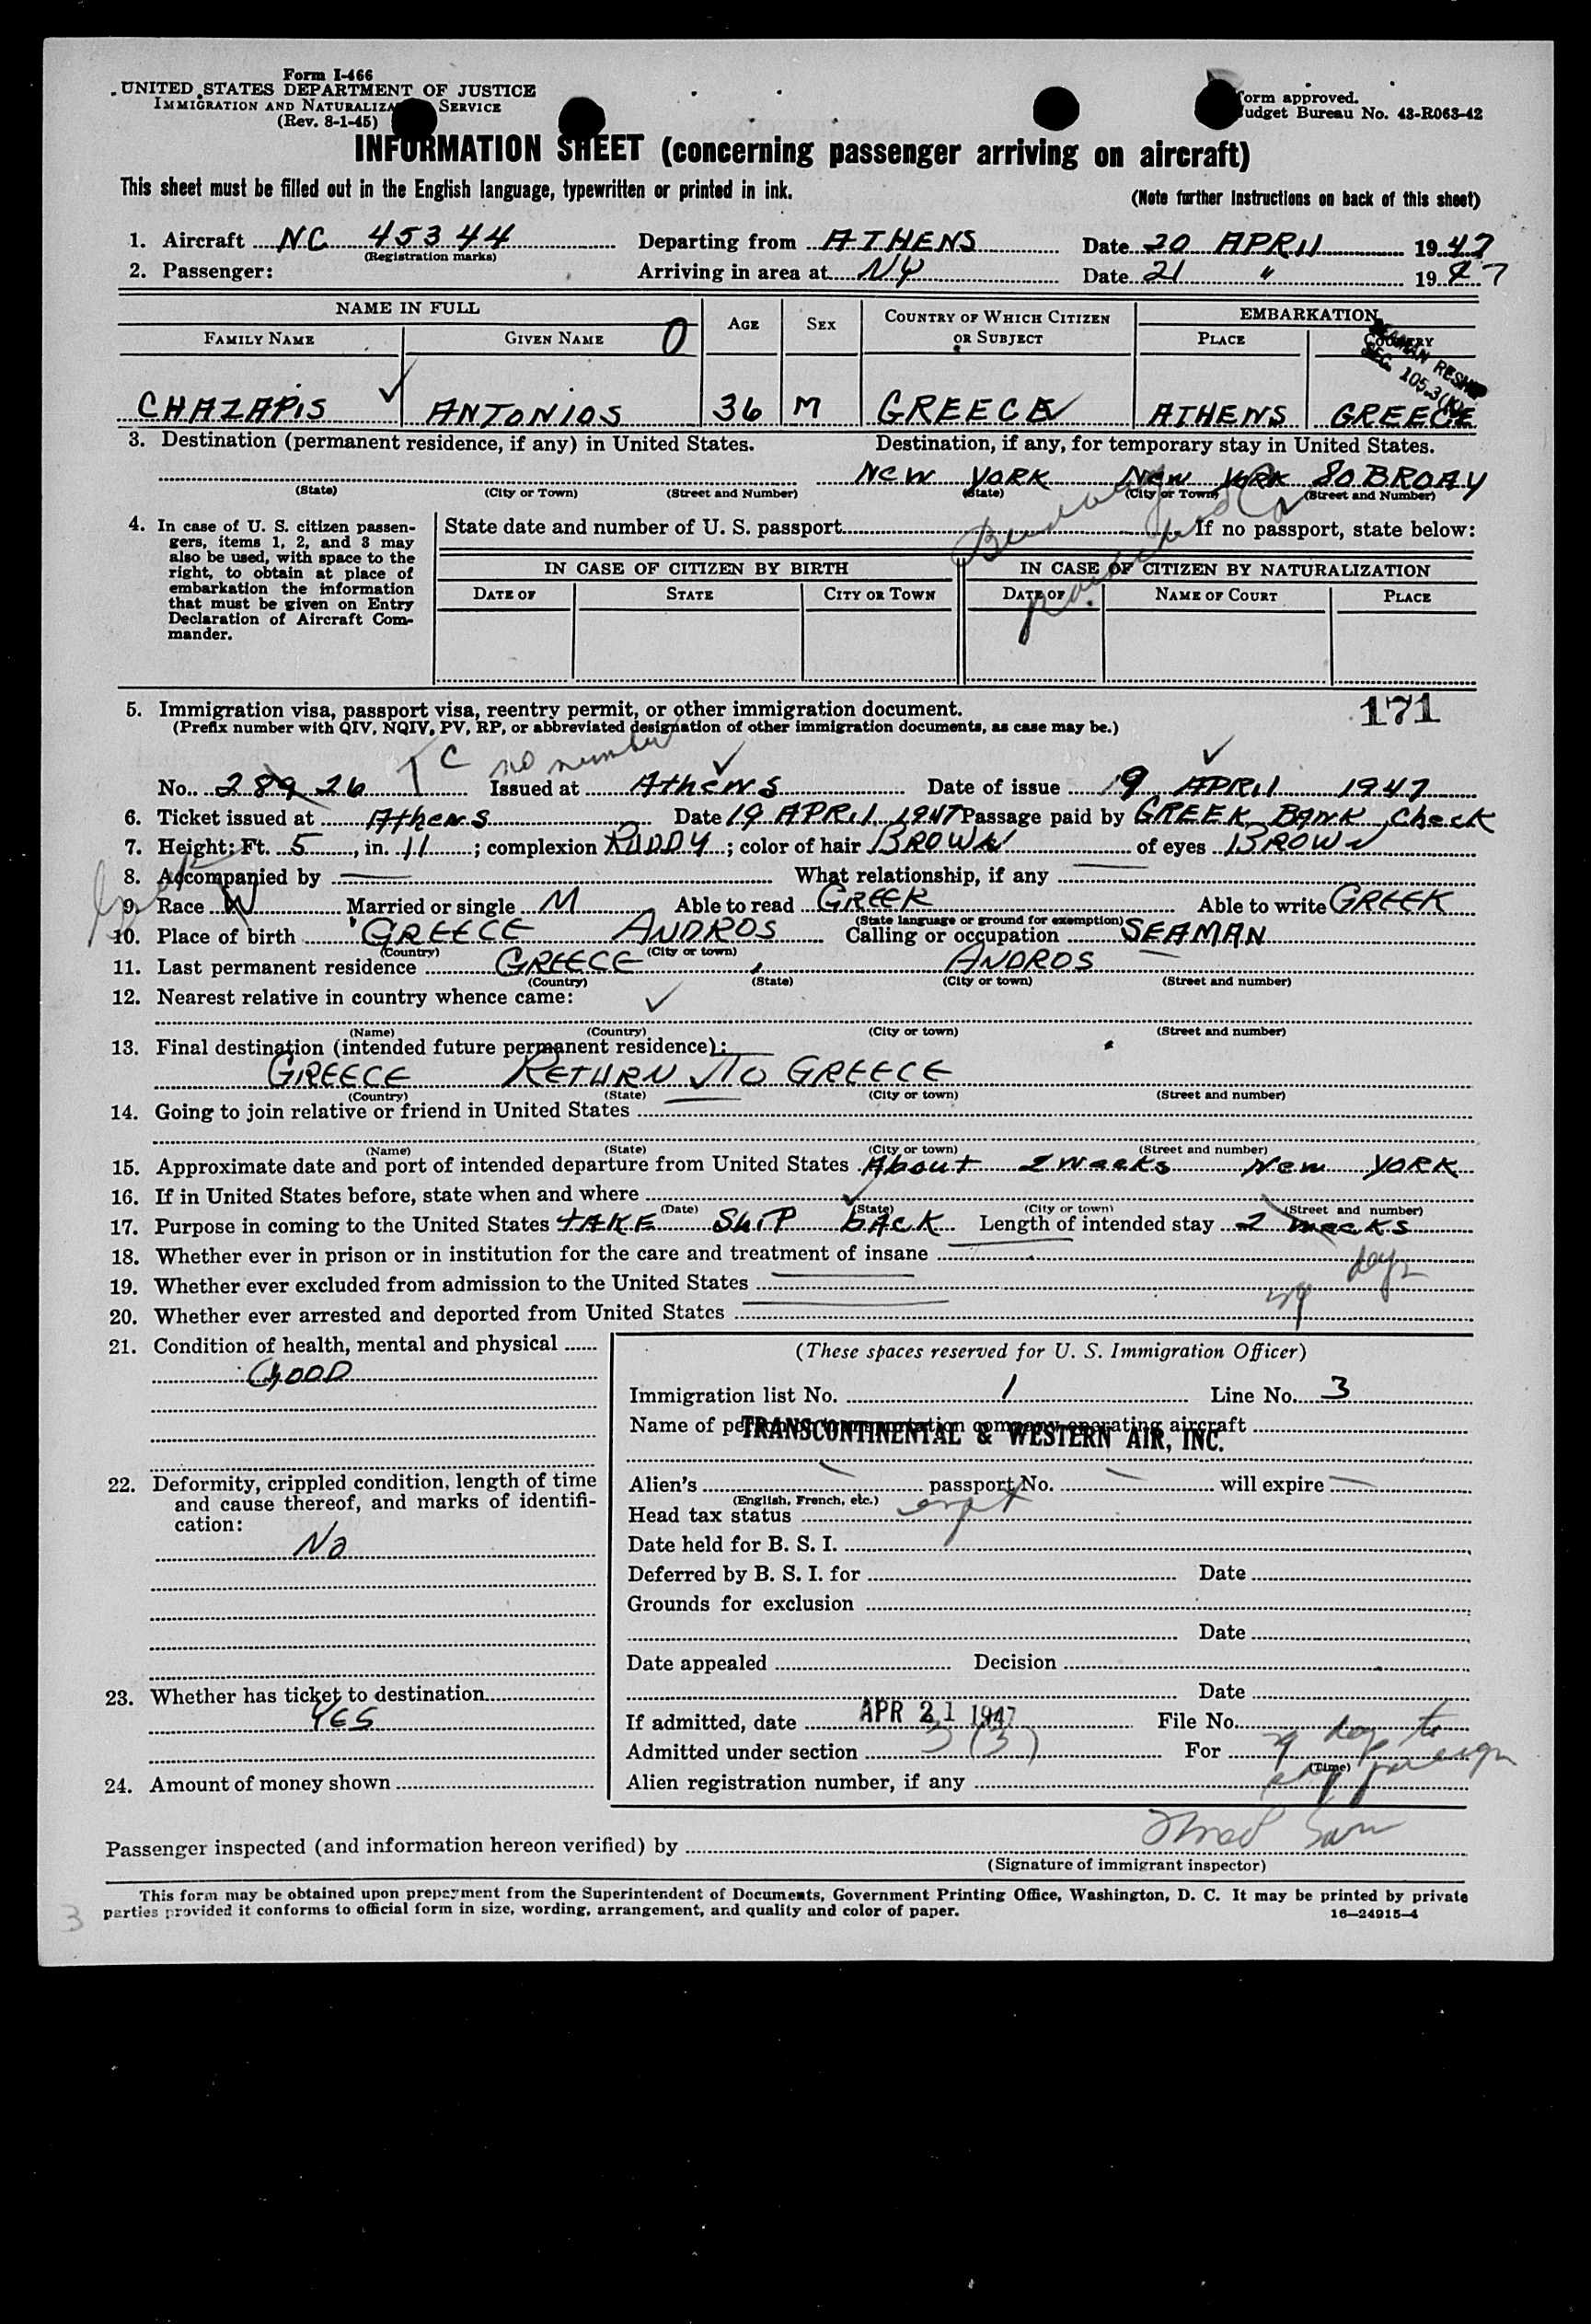 Form I-466
UNITED STATES DEPARTMENT OF JUSTICE
IMMIGRATION AND NATURALIZA SERVICE
(Rev. 8-1-45)
orm approved.
udget Bureau No. 43-R063-42
INFORMATION SHEET (concerning passenger arriving on aircraft)
This sheet must be filled out in the English language, typewritten or printed in ink.
(Note further instructions on back of this sheet)
1. Aircraft NC 45344 Departing from ATHENS Date 20 APRIL 1947
(Registration marks)
2. Passenger: Arriving in area at NY Date 21 " 1947
NAME IN FULL AGE SEX COUNTRY OF WHICH CITIZEN OR SUBJECT EMBARKATION
FAMILY NAME GIVEN NAME O PLACE COUNTRY
SEAMAN RESHIP
SEC. 105.3(K)
CHAZAPIS ANTONIOS 36 M GREECE ATHENS GREECE
3. Destination (permanent residence, if any) in United States. Destination, if any, for temporary stay in United States.
NEW YORK NEW YORK 80 BROAY
(State) (City or Town) (Street and Number) (State) (City or Town) (Street and Number)
4. In case of U. S. citizen passengers, items 1, 2, and 3 may also be used, with space to the right, to obtain at place of embarkation the information that must be given on Entry Declaration of Aircraft Commander.
State date and number of U. S. passport If no passport, state below:
IN CASE OF CITIZEN BY BIRTH IN CASE OF CITIZEN BY NATURALIZATION
DATE OF STATE CITY OR TOWN DATE OF NAME OF COURT PLACE
5. Immigration visa, passport visa, reentry permit, or other immigration document. 171
(Prefix number with QIV, NQIV, PV, RP, or abbreviated designation of other immigration documents, as case may be.)
TC no number
No. 289 26 Issued at Athens Date of issue 19 APRIL 1947
6. Ticket issued at Athens Date 19 APRIL 1947 Passage paid by GREEK BANK Check
7. Height: Ft. 5, in. 11; complexion RUDDY; color of hair BROWN of eyes BROWN
8. Accompanied by What relationship, if any
9. Race W Married or single M Able to read GREEK Able to write GREEK
(State language or ground for exemption)
10. Place of birth GREECE ANDROS Calling or occupation SEAMAN
(Country) (City or town)
11. Last permanent residence GREECE ANDROS
(Country) (State) (City or town) (Street and number)
12. Nearest relative in country whence came:
(Name) (Country) (City or town) (Street and number)
13. Final destination (intended future permanent residence):
GREECE RETURN TO GREECE
(Country) (State) (City or town) (Street and number)
14. Going to join relative or friend in United States
(Name) (State) (City or town) (Street and number)
15. Approximate date and port of intended departure from United States About 2 Weeks New YORK
16. If in United States before, state when and where
(Date) (State) (City or town) (Street and number)
17. Purpose in coming to the United States TAKE SHIP BACK Length of intended stay 2 weeks
18. Whether ever in prison or in institution for the care and treatment of insane
days
19. Whether ever excluded from admission to the United States
29
20. Whether ever arrested and deported from United States
21. Condition of health, mental and physical
GOOD
(These spaces reserved for U. S. Immigration Officer)
Immigration list No. 1 Line No. 3
Name of person or transportation company operating aircraft
TRANSCONTINENTAL & WESTERN AIR, INC.
22. Deformity, crippled condition, length of time and cause thereof, and marks of identification:
No
Alien's passport No. will expire
(English, French, etc.)
Head tax status
Date held for B. S. I.
Deferred by B. S. I. for Date
Grounds for exclusion
Date
Date appealed Decision
Date
23. Whether has ticket to destination
YES
If admitted, date APR 21 1947 File No.
Admitted under section 3 (3) For 29 days to
(Time)
foreign
24. Amount of money shown
Alien registration number, if any
Passenger inspected (and information hereon verified) by
(Signature of immigrant inspector)
This form may be obtained upon prepayment from the Superintendent of Documents, Government Printing Office, Washington, D. C. It may be printed by private
parties provided it conforms to official form in size, wording, arrangement, and quality and color of paper.
16—24915-4
3